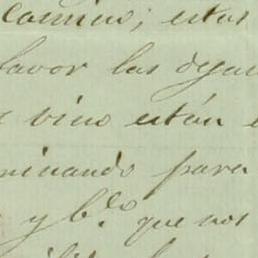 camino; estas
favor las deja
vino están
minando para
y b.do que nos